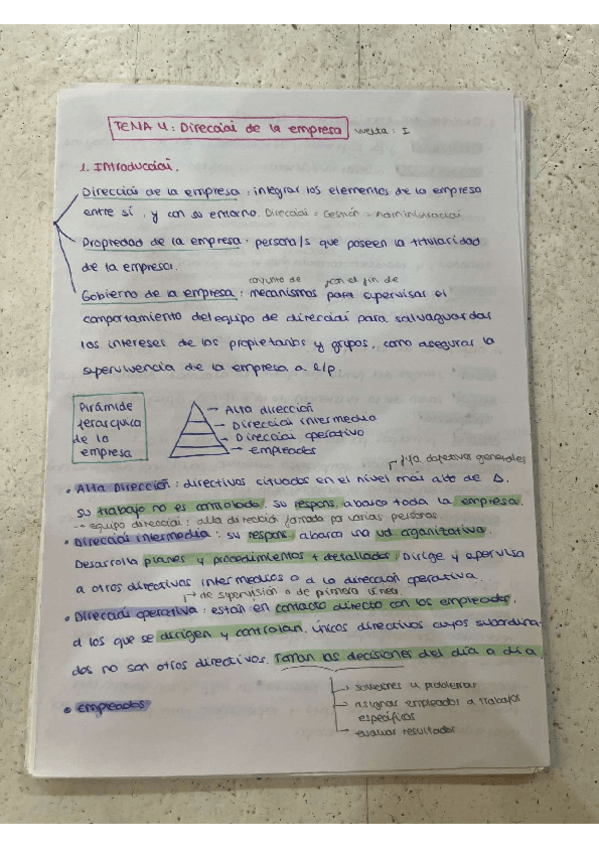 TEMA 4: Dirección de la empresa
1. Introducción.
Dirección de la empresa: integrar los elementos de la empresa
entre sí, y con su entorno. Dirección = Gestión = Administración
Propiedad de la empresa: persona/s que poseen la titularidad
de la empresa.
conjunto de con el fin de
Gobierno de la empresa: mecanismos para supervisar el
comportamiento del equipo de dirección para salvaguardas
los intereses de los propietarios y grupos, como asegurar la
supervivencia de la empresa a l/p
Pirámide
jerárquica
de la
empresa
Alta dirección
Dirección intermedia
Dirección operativa
Empleados
fija objetivos generales
• Alta Dirección: directivos situados en el nivel más alto de Δ.
su trabajo no es controlado, su respons. abarca toda la empresa.
→ equipo dirección: alta dirección formada por varias personas.
• Dirección intermedia: su respons. abarca una ud organizativa.
Desarrolla planes y procedimientos + detallados. Dirige y supervisa
a otros directivos intermedios o a la dirección operativa.
→ de supervisión o de primera línea.
• Dirección operativa: están en contacto directo con los empleados,
a los que se dirigen y controlan. Únicos directivos cuyos subordina-
dos no son otros directivos. Toman las decisiones del día a día
→ soluciones a problemas
→ asignar empleados a trabajos
específicos
→ evaluar resultados
• empleados